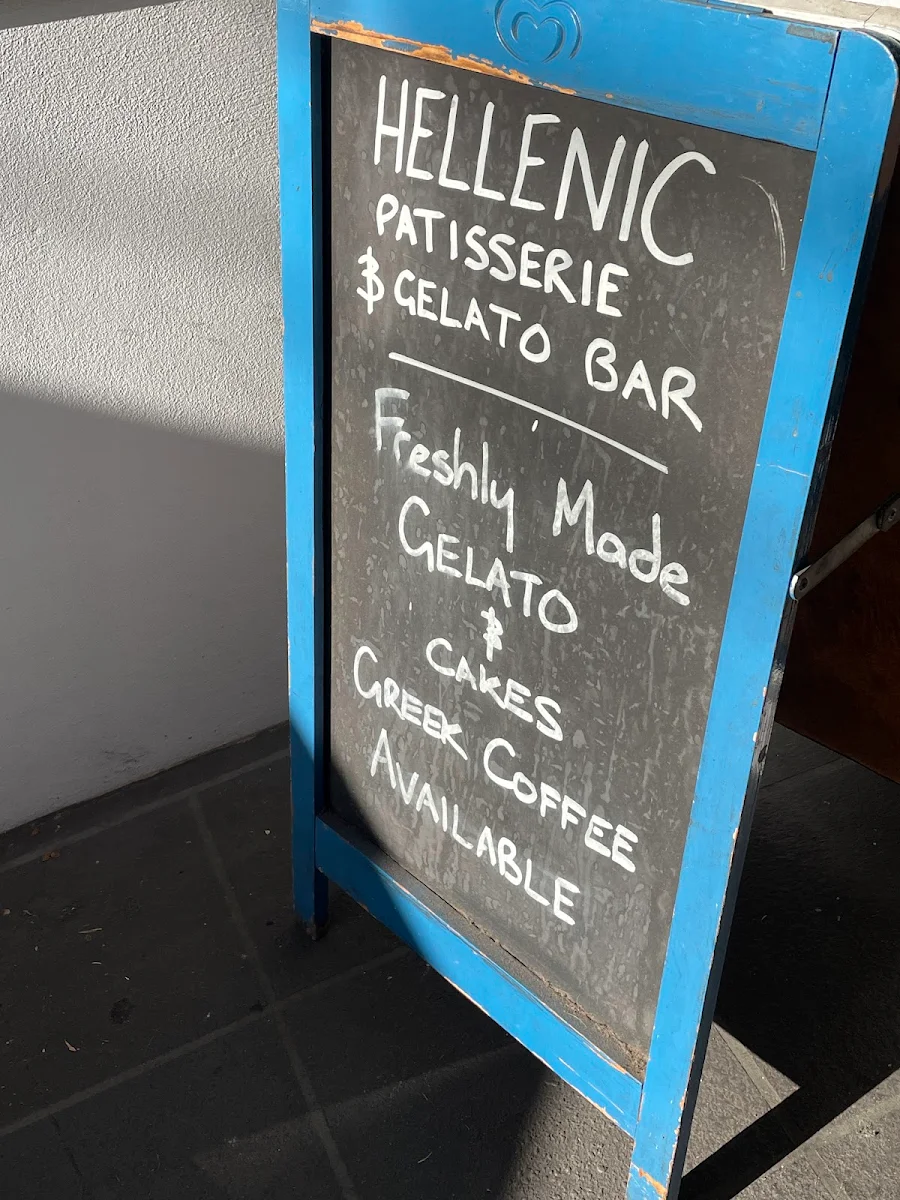 HELLENIC
PATISSERIE
& GELATO BAR
Freshly Made
GELATO
&
CAKES
GREEK COFFEE
AVAILABLE